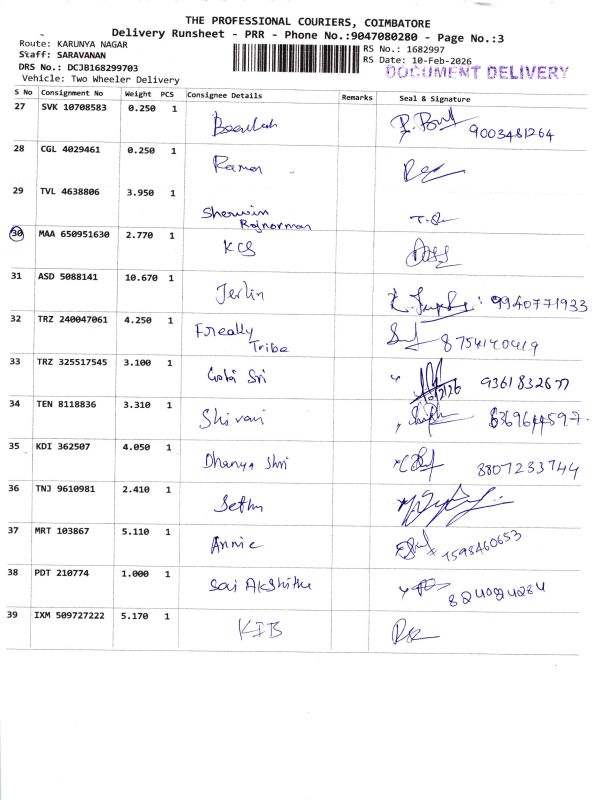 THE PROFESSIONAL COURIERS, COIMBATORE
Delivery Runsheet - PRR - Phone No.:9047080280 - Page No.:3
Route: KARUNYA NAGAR
Staff: SARAVANAN
DRS No.: DCJB168299703
Vehicle: Two Wheeler Delivery
RS No.: 1682997
RS Date: 10-Feb-2026
DOCUMENT DELIVERY
S No Consignment No Weight PCS Consignee Details Remarks Seal & Signature
27 SVK 10708583 0.250 1
9003481264
28 CGL 4029461 0.250 1
Raman
29 TVL 4638806 3.950 1
Sherwin
Rajnorman
30 MAA 650951630 2.770 1
KCS
31 ASD 5088141 10.670 1
Jerlin 9940771933
32 TRZ 240047061 4.250 1
Freally
Tribe 8754140419
33 TRZ 325517545 3.100 1
Sri
34 TEN 8118836 3.310 1
Shivani
35 KDI 362507 4.050 1
Dhanya Shri 8807233744
36 TNJ 9610981 2.410 1
Sethu
37 MRT 103867 5.110 1
Annie 7598460653
38 PDT 210774 1.000 1
Sai Akshitha
39 IXM 509727222 5.170 1
KIB